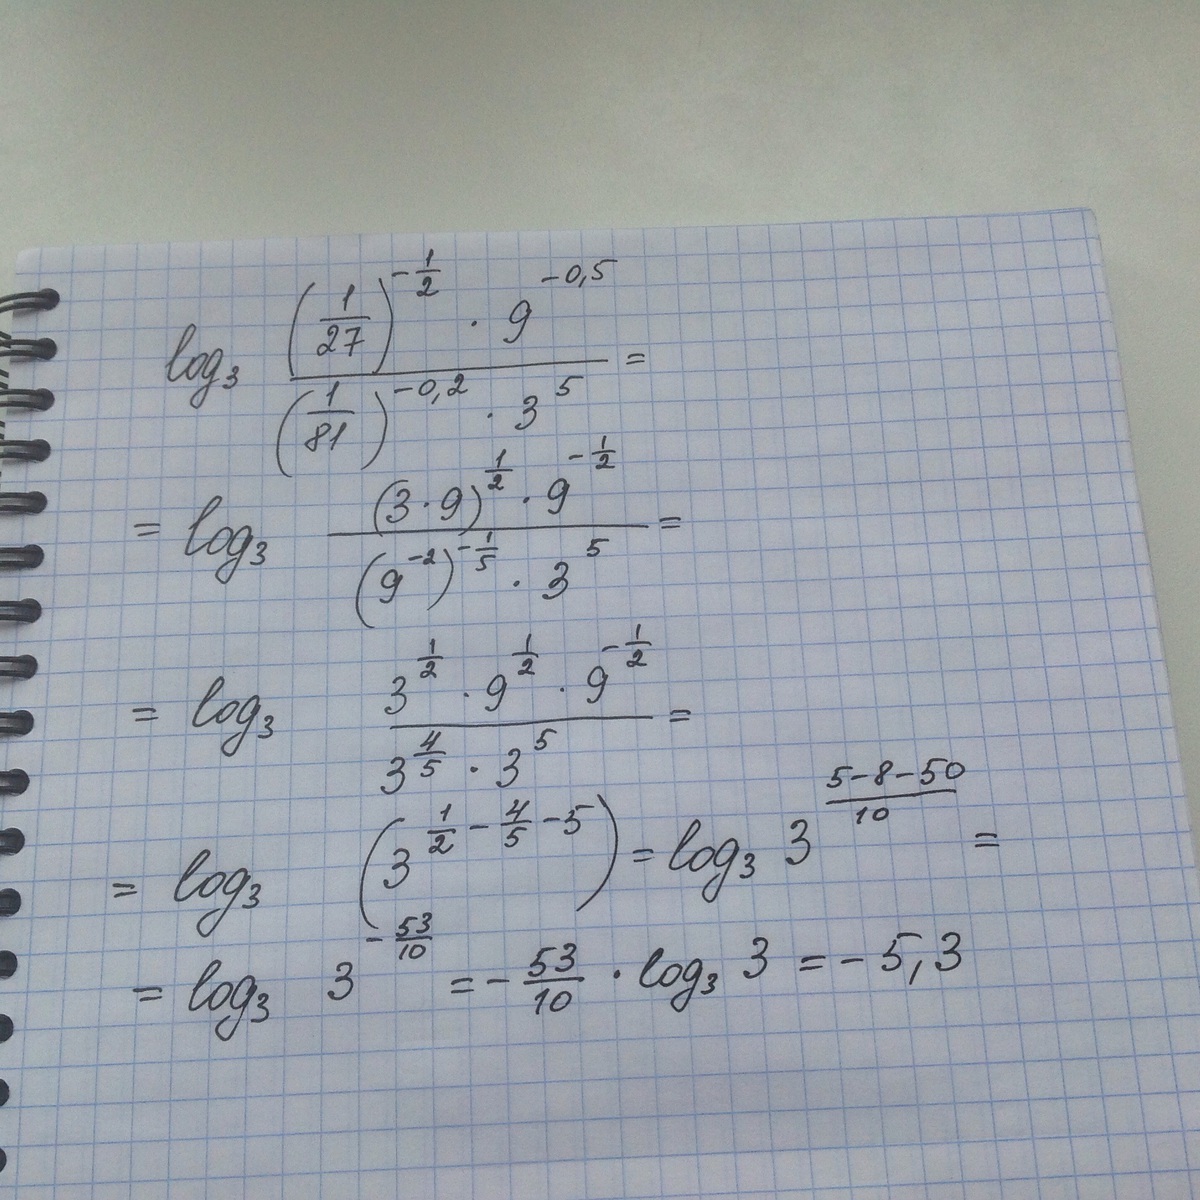 log₃ ((1/27)^(-1/2) · 9^(-0,5)) / ((1/81)^(-0,2) · 3^5) =
= log₃ ((3·9)^(1/2) · 9^(-1/2)) / ((9^(-2))^(-1/5) · 3^5) =
= log₃ (3^(1/2) · 9^(1/2) · 9^(-1/2)) / (3^(4/5) · 3^5) =
= log₃ (3^(1/2 - 4/5 - 5)) = log₃ 3^((5-8-50)/10) =
= log₃ 3^(-53/10) = - 53/10 · log₃ 3 = - 5,3